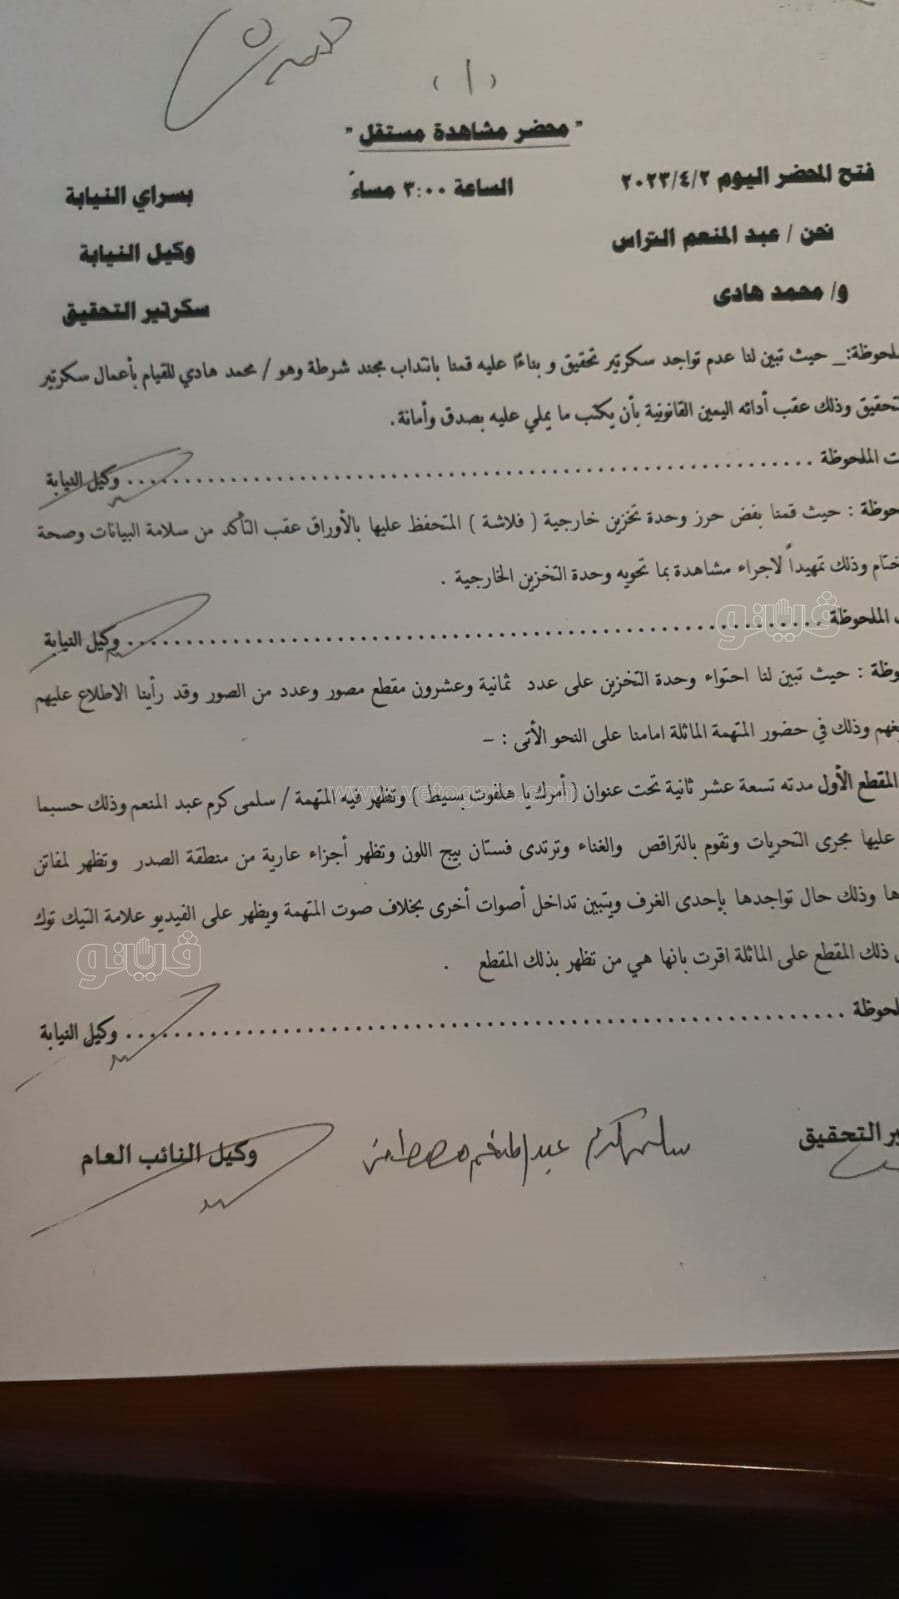 (١)
" محضر مشاهدة مستقل "
فتح المحضر اليوم ٢٠٢٣/٤/٢ الساعة ٣:٠٠ مساءً بسراي النيابة
نحن / عبد المنعم التراس وكيل النيابة
و/ محمد هادى سكرتير التحقيق
ملحوظة:_ حيث تبين لنا عدم تواجد سكرتير تحقيق و بناءًا عليه قمنا بانتداب مجند شرطة وهو / محمد هادي للقيام بأعمال سكرتير
تحقيق وذلك عقب أدائه اليمين القانونية بأن يكتب ما يملي عليه بصدق وأمانة .
ت الملحوظة .......................................................... وكيل النيابة
حوظة : حيث قمنا بفض حرز وحدة تخزين خارجية ( فلاشة ) المتحفظ عليها بالأوراق عقب التأكد من سلامة البيانات وصحة
ختام وذلك تمهيداً لاجراء مشاهدة بما تحويه وحدة التخزين الخارجية .
ـ الملحوظة .......................................................... وكيل النيابة
وظة : حيث تبين لنا احتواء وحدة التخزين على عدد ثمانية وعشرون مقطع مصور وعدد من الصور وقد رأينا الاطلاع عليهم
غهم وذلك في حضور المتهمة الماثلة امامنا على النحو الأتى : –
المقطع الأول مدته تسعة عشر ثانية تحت عنوان ( أمرك يا هلفوت بسيط ) وتظهر فيه المتهمة / سلمى كرم عبد المنعم وذلك حسبما
عليها مجرى التحريات وتقوم بالتراقص والغناء وترتدى فستان بيج اللون وتظهر أجزاء عارية من منطقة الصدر وتظهر لمفاتن
ها وذلك حال تواجدها بإحدى الغرف ويتبين تداخل أصوات أخرى بخلاف صوت المتهمة ويظهر على الفيديو علامة التيك توك
ذلك المقطع على الماثلة اقرت بانها هي من تظهر بذلك المقطع .
لحوظة .......................................................... وكيل النيابة
ير التحقيق سلمى كرم عبد المنعم مصطفى وكيل النائب العام
ڤيتو
www.vetogate.com
ڤيتو